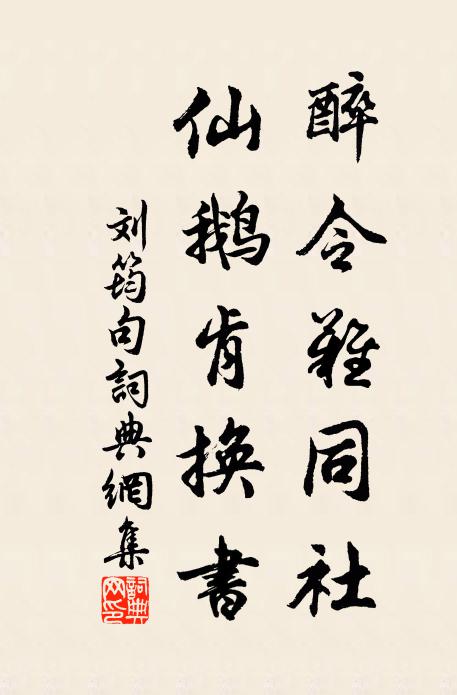 醉令難同社
仙鵝肯換書
刘筠句詞典網集
詞典网印